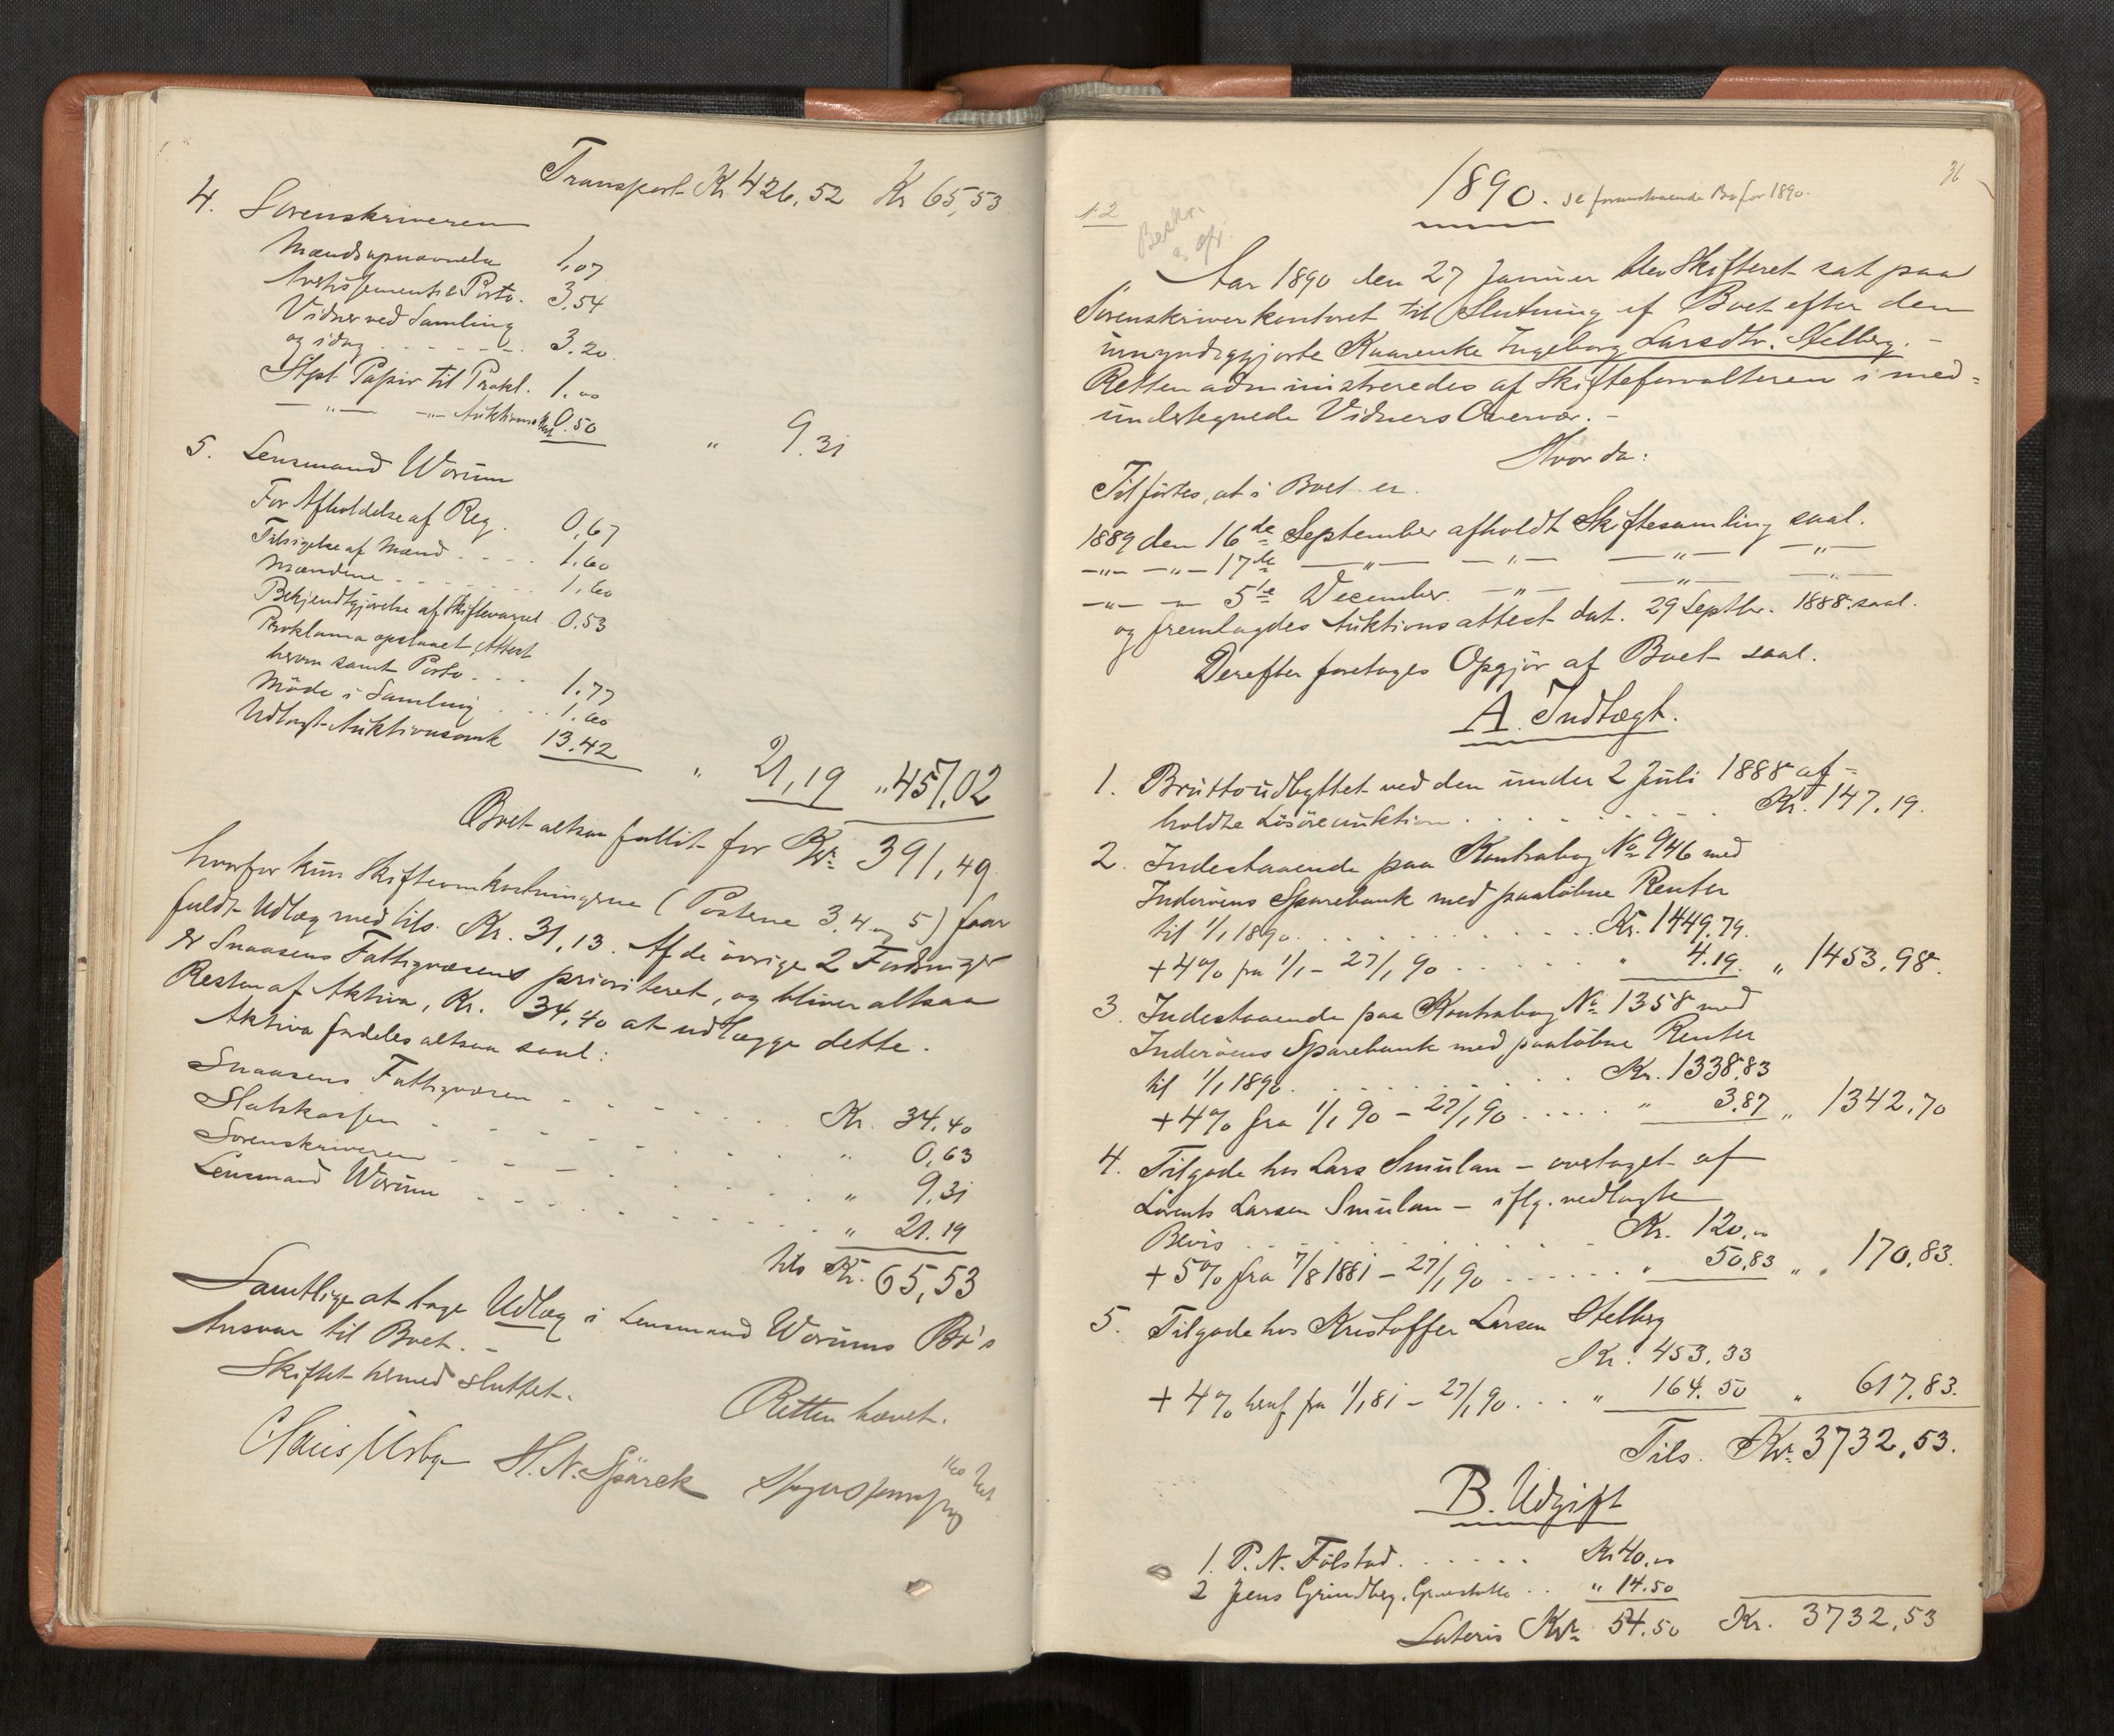 Transport Kr. 426,52 Kr 65,53
4. Sorenskriveren
Mændsopnævnelse 1,07
Avertissements & Porto. 3,54
Vidner ved Samling
og idag . . . . . . 3.20
Stpt Papir til Prokl. 1.00
—„— —„— Auktions 0.50 „ 9.31
5. Lensmand Worum
For Afholdelse af Reg. 0,67
Tilsigelse af Mænd . . . . 1.60
Mændene . . . . . . 1,60
Bekjendtgjørelse af Skiftevarsel 0.53
Proklama opslaaet, Attest
herom samt Porto . . . 1.77
Møde i Samling . . . 1.60
Udlagt Auktionsomk 13.42 „ 21,19 „ 457,02
Boet altsaa fallit for Kr. 391,49
hvorfor kun Skifteomkostningerne (Posterne 3.4 og 5) faar
fuldt Udlæg med tils. Kr. 31,13. Af de øvrige 2 Fordringer
er Snaasens Fattigvæsens prioriteret, og bliver altsaa
Resten af Aktiva, Kr. 34,40 at udlægge dette.
Aktiva fordeles altsaa saal:
Snaasens Fattigvæsen . . . . . . Kr. 34,40
Statskassen . . . . . . „ 0,63
Sorenskriveren . . . . . . „ 9,31
Lensmand Worum . . . . . . „ 21.19
tils Kr. 65,53
Samtlige at tage Udlæg i Lensmand Worums Bo's
Ansvar til Boet. —
Skiftet hermed sluttet.
Retten hævet.
H. N. Sjörek
36
1890. se foranstaaende Bo for 1890.
№ 2
Beskr.
Aar 1890 den 27 Januar blev Skifteret sat paa
Sorenskriverkontoret til Slutning af Boet efter den
umyndiggjorte Kaarenke Ingeborg Larsdtr. Stelberg. —
Retten administreredes af Skifteforvalteren i med-
undertegnede Vidners Overvær. —
Hvorda:
Tilførtes, at i Boet er.
1889 den 16de September afholdt Skiftesamling saal.
—„— —„— 17de —„— —„— —„— —„—
—„— —„— 5te December —„— —„— —„—
og fremlagdes Auktionsattest dat. 29 Septbr. 1888 saal.
Derefter foretoges Opgjør af Boet saal.
A. Indtægt.
1. Bruttoudbyttet ved den under 2 Juli 1888 af-
holdte Løsøreauktion . . . . . . Kr. 147,19.
2. Indestaaende paa Kontrabog № 946 med
Inderøens Sparebank med paaløbne Renter
til 1/1 1890 . . . . . . Kr. 1449,79.
+ 4% fra 1/1 – 27/1 90 . . . . . „ 4.19. „ 1453,98.
3. Indestaaende paa Kontrabog № 1358 med
Inderøens Sparebank med paaløbne Renter
til 1/1 1890 . . . . . . Kr. 1338,83
+ 4% fra 1/1 90 – 27/1 90 . . . . . „ 3,87 „ 1342,70
4. Tilgode hos Lars Smulan – overtaget af
Lorents Larsen Smulan – iflg. vedlagte
Bevis . . . . . . Kr. 120,00
+ 5% fra 7/8 1881 – 27/1 90 . . . . . . „ 50,83 „ 170,83.
5. Tilgode hos Kristoffer Larsen Stelberg
Kr. 453,33
+ 4% heraf fra 1/1 81 – 27/1 90 . . . „ 164.50 „ 617,83.
Tils. Kr. 3732,53.
B. Udgift
1. P. N. Følstad . . . . . . Kr 40,00
2 Jens Grindberg, . . „ 14.50
Lateris Kr. 54.50 Kr. 3732,53